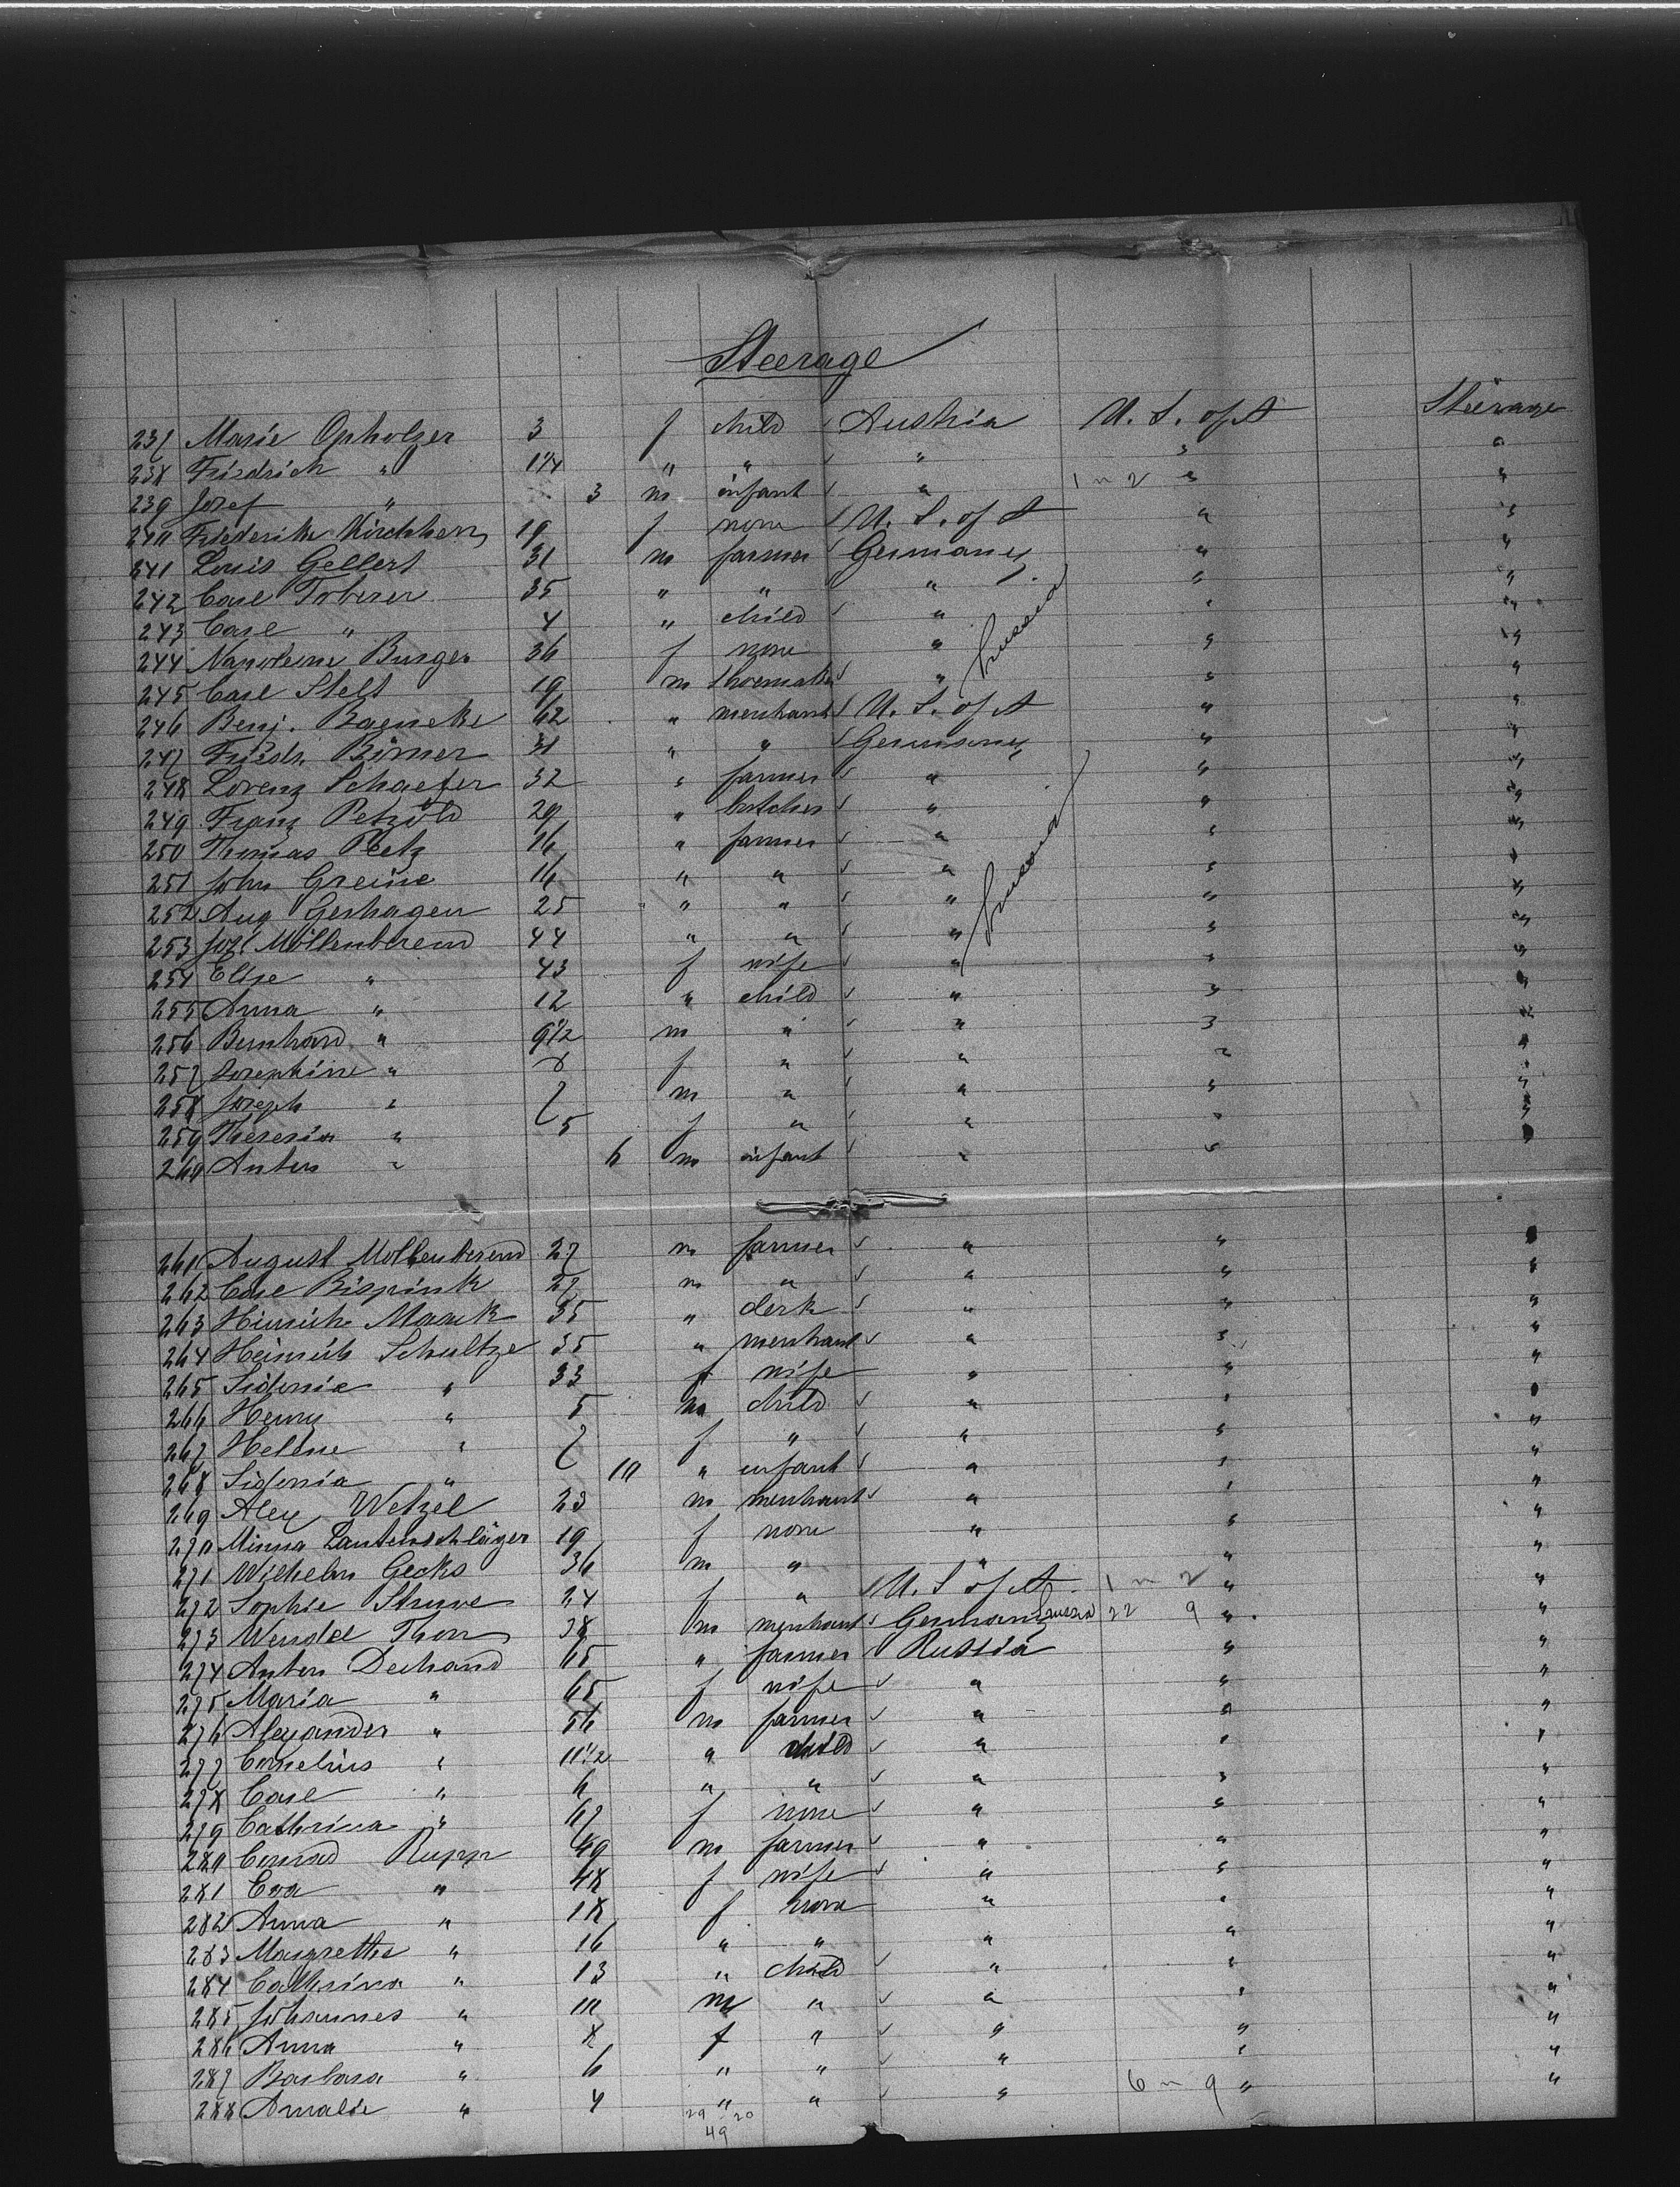 Steerage
237 Marie Opholzer 3 f child Austria U. S. of A Steerage
238 Friedrich " 1 1/4 " " " " "
239 Josef " 3 m infant " 1 m 2 " "
240 Friederike Kirchherr 19 f none U. S. of A " "
241 Louis Gellert 31 m farmer Germany " "
242 Carl Toberer 35 " " " " "
243 Carl " 4 " child " " "
244 Napoleone Burger 36 f none " " "
245 Carl Stelt 19 m shoemaker " " "
246 Benj. Baeneke 62 " merchant U. S. of A " "
247 Friedr. Börner 31 " " Germany " "
248 Lorenz Schaefer 32 " farmer " " "
249 Franz Petzold 29 " butcher " " "
250 Thomas Reetz 16 " farmer " " "
251 John Greine 16 " " " " "
252 Aug Gerhagen 25 " " " " "
253 Jos. Möllenberend 44 " " " " "
254 Elise " 43 f wife " " "
255 Anna " 12 " child " " "
256 Bernhard " 9 1/2 m " " " "
257 Josephine " 8 f " " " "
258 Joseph " 7 m " " " "
259 Theresia " 5 f " " " "
260 Anton " 6 m infant " " "
261 August Mollenberend 27 m farmer " " "
262 Carl Bispink 27 m " " " "
263 Hinrich Maack 35 " clerk " " "
264 Heinrich Schultze 35 " merchant " " "
265 Sidonie " 33 f wife " " "
266 Henry " 5 m child " " "
267 Helene " 7 f " " " "
268 Sidonia " 10 " infant " " "
269 Alex Wetzel 23 m merchant " " "
270 Minna Lautenschläger 19 f none " " "
271 Wilhelm Gecks 36 m " " " "
272 Sophie Struve 24 f " U. S of A 1 m 2 " "
273 Wendel Thon 38 m merchant Germany Prussia 22 9 " "
274 Anton Dechand 65 " farmer Russia " "
275 Maria " 65 f wife " " "
276 Alexander " 56 m farmer " " "
277 Cornelius " 11 1/2 " child " " "
278 Carl " 6 " " " " "
279 Cathrina " 67 f none " " "
280 Conrad Rupp 49 m farmer " " "
281 Eva " 48 f wife " " "
282 Anna " 18 f none " " "
283 Margrethe " 16 " " " " "
284 Cathrina " 13 " child " " "
285 Johannes " 10 m " " " "
286 Anna " 8 f " " " "
287 Barbara " 6 " " " " "
288 Amalie " 4 " " " 6 m 9 " "
29 20
49
Prussia
Prussia